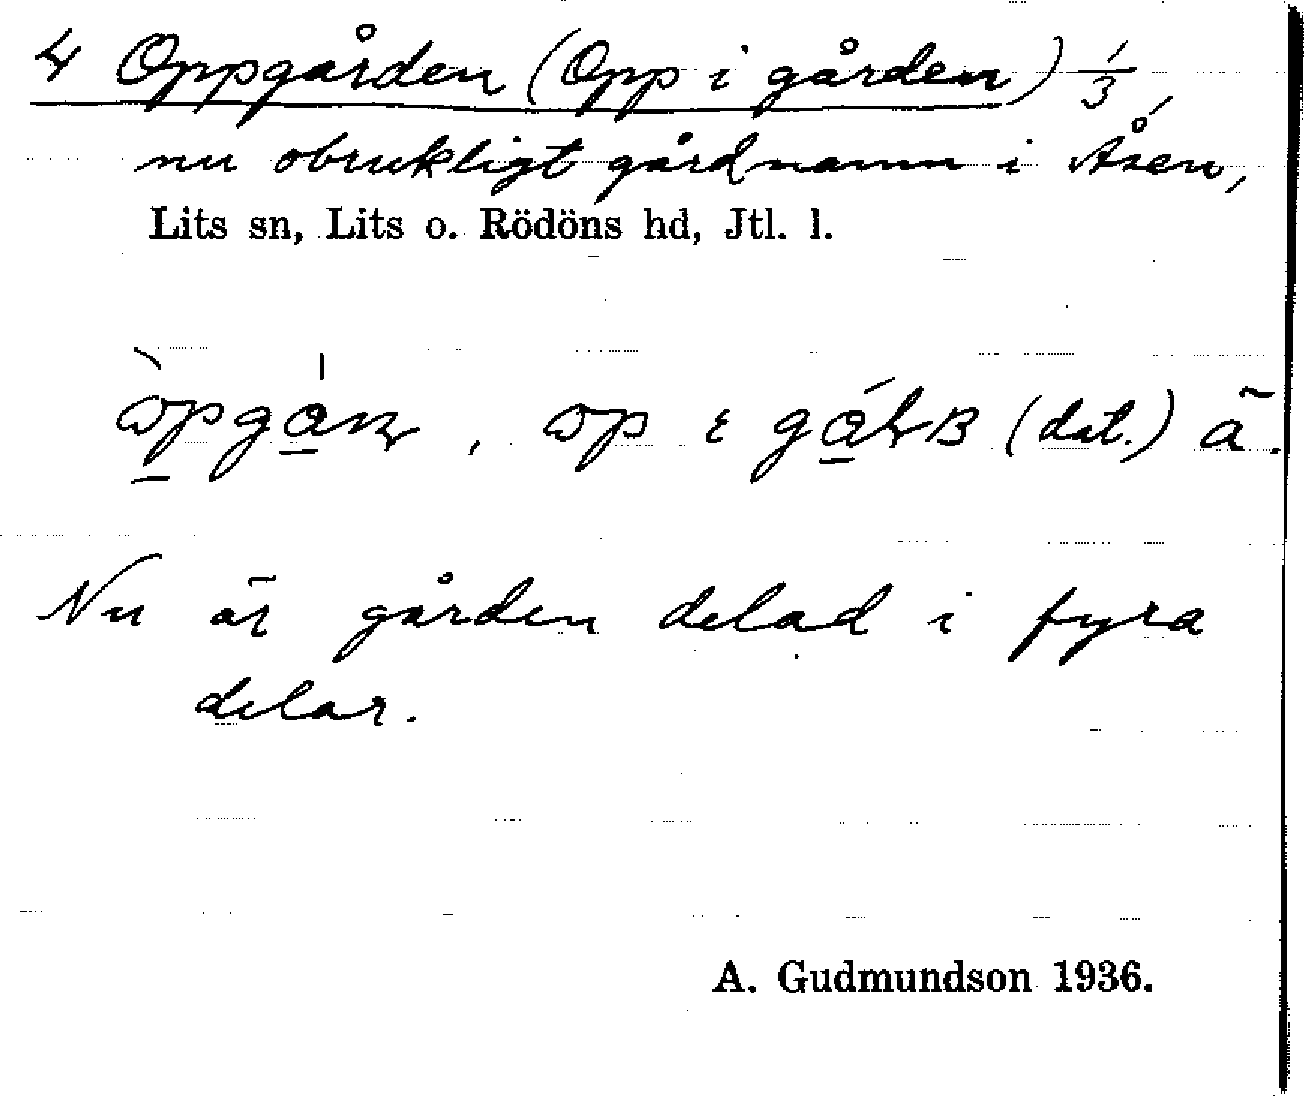 4 Oppgården (Opp i gården) 1/3
nu obrukligt gårdnamn i Åsen,
Lits sn, Lits o. Rödöns hd, Jtl. l.
(dat.) ā.
Nu är gården delad i fyra
delar.
A. Gudmundson 1936.